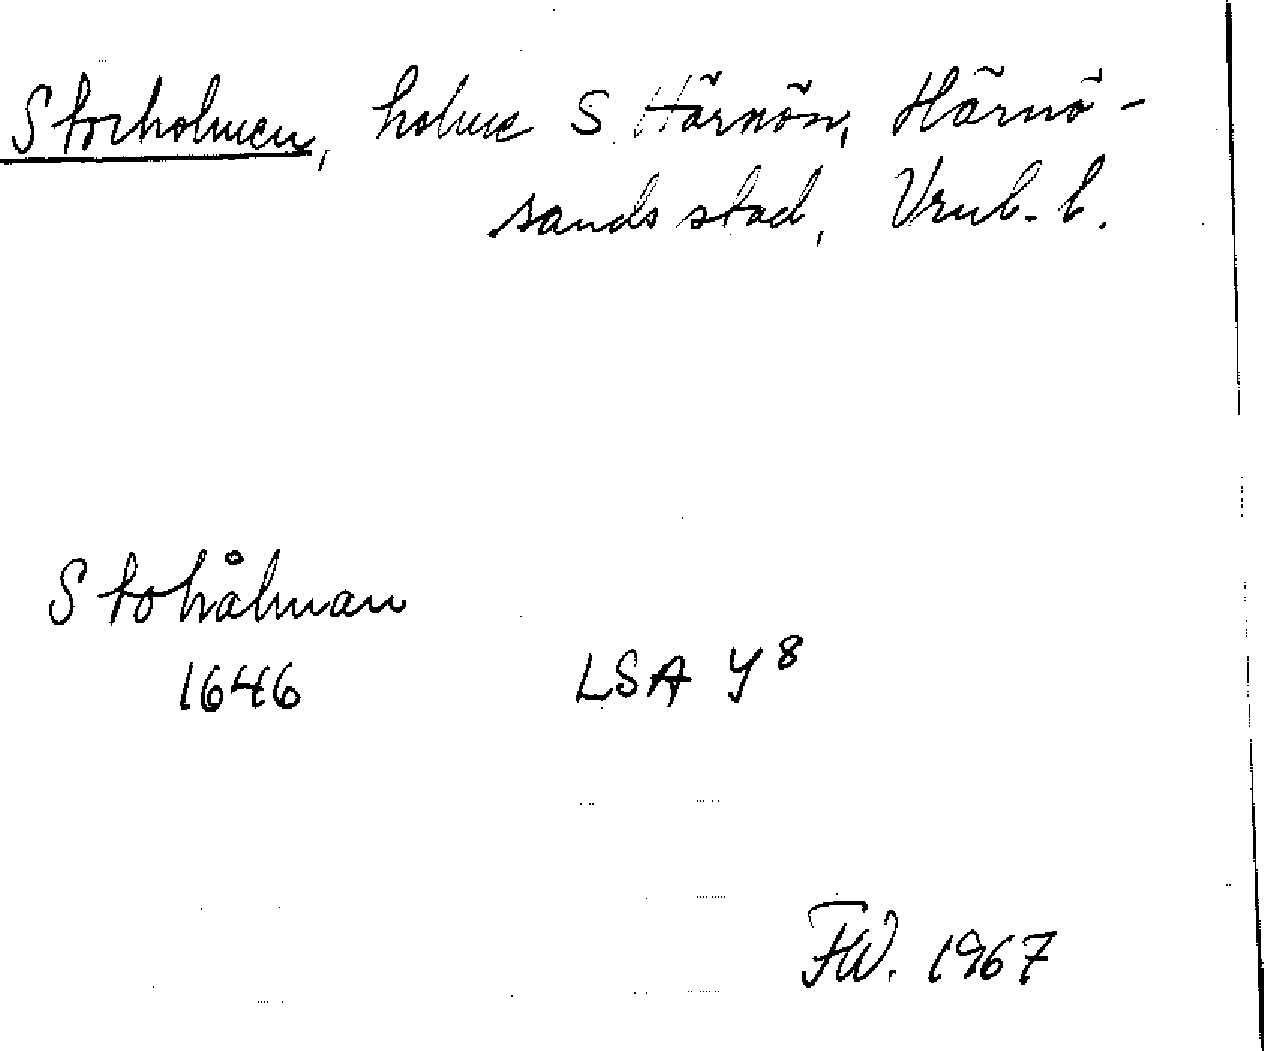 Storholmen, holme S Härnön, Härnö-
sands stad, Vrnl. l.
Stohålman
1646 LSA Y8
FW. 1967